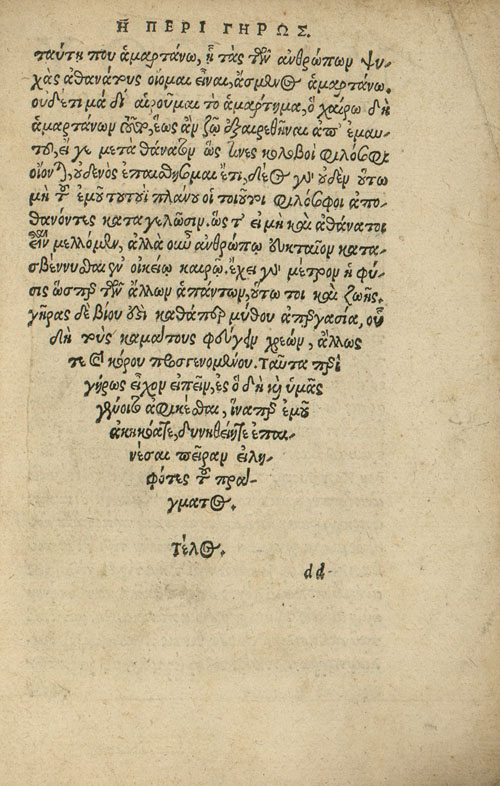 Ἢ ΠΕΡΙ ΓΗΡΩΣ.
ταύτη που ἁμαρτάνω, ᾗ τὰς τῶν ἀνθρώπων ψυ-
χὰς ἀθανάτους οἴομαι εἶναι, ἄσμενος ἁμαρτάνω.
οὐδέ τι μὰ δί αἱροῦμαι τὸ ἁμάρτημα, ὃ χαίρω δὴ
ἁμαρτάνων τοῦτο, ἕως ἂν ζῶ ἐξαιρεθῆναι ἀπ' ἐμαυ-
τοῦ, εἴ γε μετὰ θάνατον ὥς τινες κολοβοὶ φιλόσοφοι
οἴονται, οὐδενὸς ἐπαισθήσομαι ἔτι, δέος γ' οὐδὲν οὕτω
μὴ τοῦ ἐμοῦ τουτουῒ πλάνου οἱ τοιοῦτοι φιλόσοφοι ἀπο-
θανόντες καταγελῶσιν. ὥς τ' εἰ μὴ καὶ ἀθάνατοι
εἶναι μέλλομεν, ἀλλὰ οὖν ἀνθρώπῳ εὐκταῖον κατα-
σβέννυσθαι ἐν οἰκείῳ καιρῷ. ἔχει γὰρ μέτρον ἡ φύ-
σις ὥσπερ τῶν ἄλλων ἁπάντων, οὕτω τοι καὶ ζωῆς.
γῆρας δὲ βίου ἐστὶ καθάπερ μύθου ἀπεργασία, οὗ
δὴ τοὺς καμάτους φεύγειν χρεὼν, ἄλλως
τε καὶ κόρου προσγενομένου. Ταῦτα περὶ
γήρως εἶχον εἰπεῖν, ἐς ὃ δὴ καὶ ὑμᾶς
γένοιτο ἀφικέσθαι, ἵνα περ ἐμοῦ
ἀκηκόατε, δυνηθείητε ἐπαι-
νέσαι πεῖραν εἰλη-
φότες τοῦ πρά-
γματος.
Τέλος.
dd